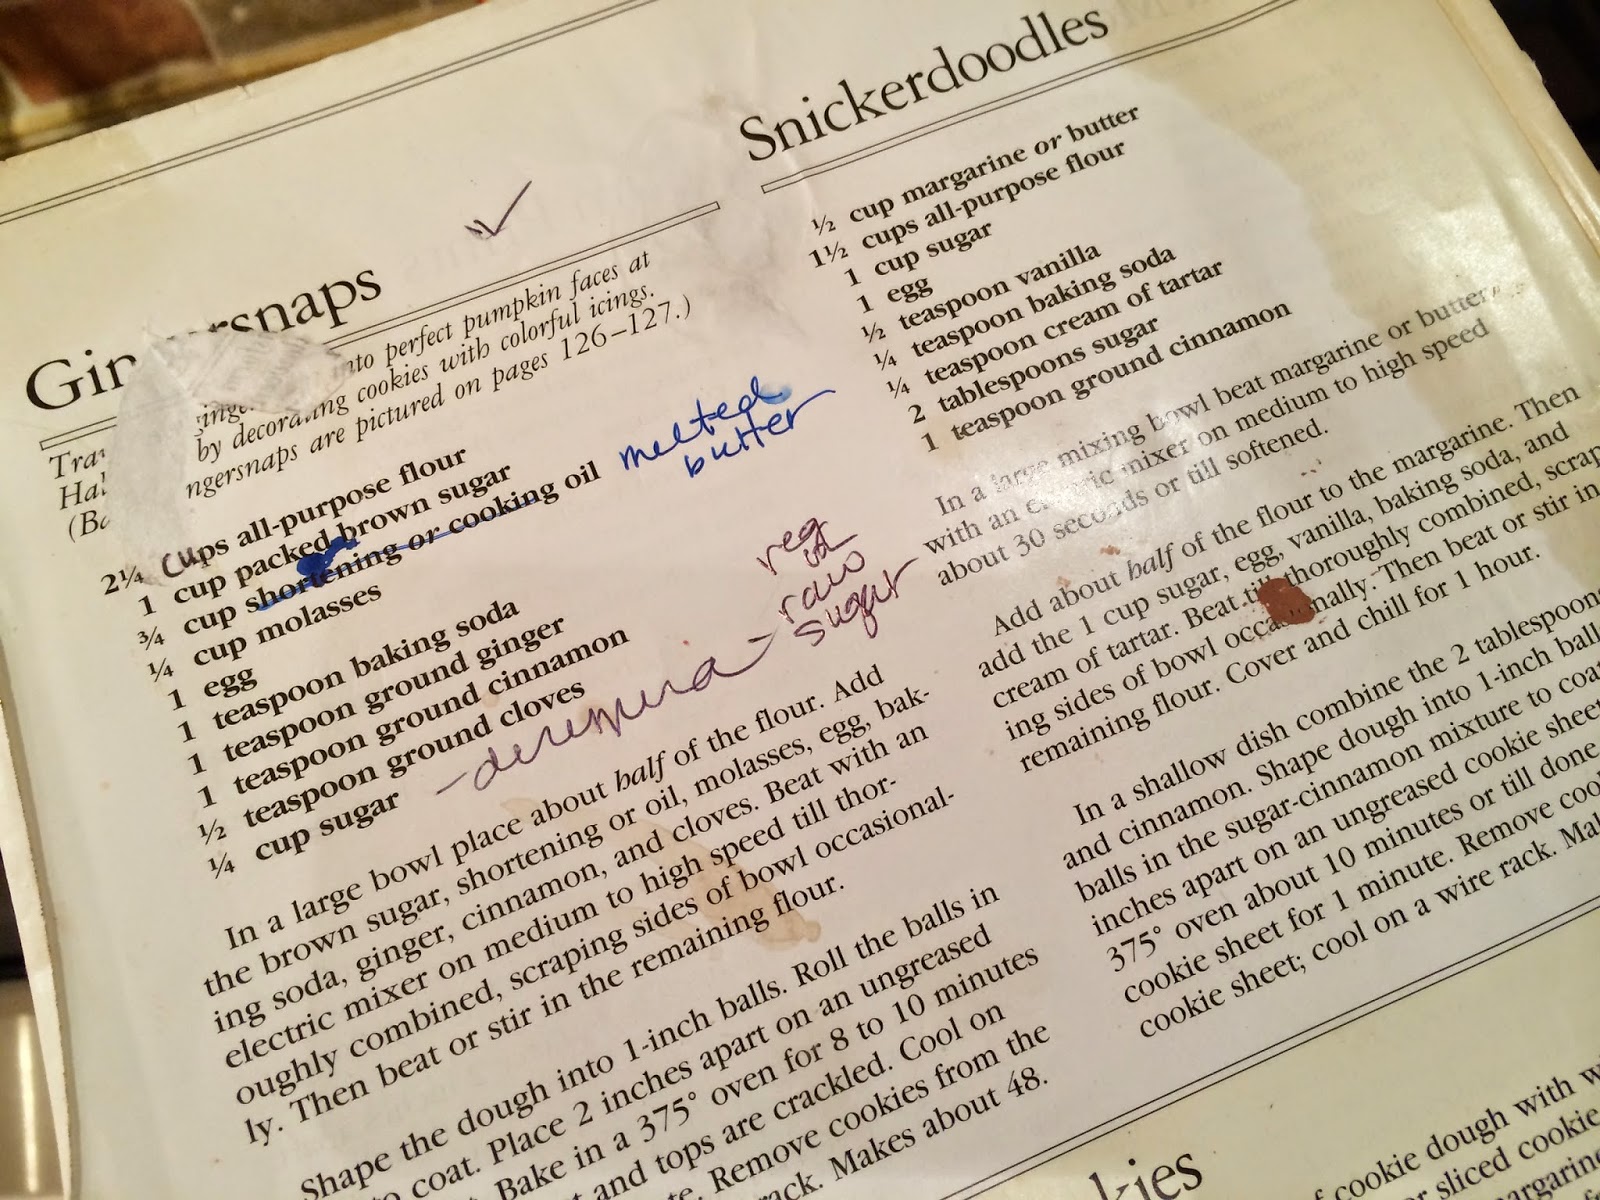 Gingersnaps
into perfect pumpkin faces at
by decorating cookies with colorful icings.
ngersnaps are pictured on pages 126–127.)
2¼ cups all-purpose flour
1 cup packed brown sugar
¾ cup shortening or cooking oil melted butter
¼ cup molasses
1 egg
1 teaspoon baking soda
1 teaspoon ground ginger
1 teaspoon ground cinnamon
½ teaspoon ground cloves
¼ cup sugar
reg
raw
sugar
In a large bowl place about half of the flour. Add
the brown sugar, shortening or oil, molasses, egg, bak-
ing soda, ginger, cinnamon, and cloves. Beat with an
electric mixer on medium to high speed till thor-
oughly combined, scraping sides of bowl occasional-
ly. Then beat or stir in the remaining flour.
Shape the dough into 1-inch balls. Roll the balls in
to coat. Place 2 inches apart on an ungreased
Bake in a 375° oven for 8 to 10 minutes
and tops are crackled. Cool on
Remove cookies from the
rack. Makes about 48.
Snickerdoodles
½ cup margarine or butter
1½ cups all-purpose flour
1 cup sugar
1 egg
½ teaspoon vanilla
¼ teaspoon baking soda
¼ teaspoon cream of tartar
2 tablespoons sugar
1 teaspoon ground cinnamon
In a large mixing bowl beat margarine or butter
with an electric mixer on medium to high speed
about 30 seconds or till softened.
Add about half of the flour to the margarine. Then
add the 1 cup sugar, egg, vanilla, baking soda, and
cream of tartar. Beat till thoroughly combined, scrap
ing sides of bowl occasionally. Then beat or stir in
remaining flour. Cover and chill for 1 hour.
In a shallow dish combine the 2 tablespoons
and cinnamon. Shape dough into 1-inch ball
balls in the sugar-cinnamon mixture to coat
inches apart on an ungreased cookie sheet
375° oven about 10 minutes or till done
cookie sheet for 1 minute. Remove coo
cookie sheet; cool on a wire rack. Mak
kies
cookie dough with w
or sliced cookie